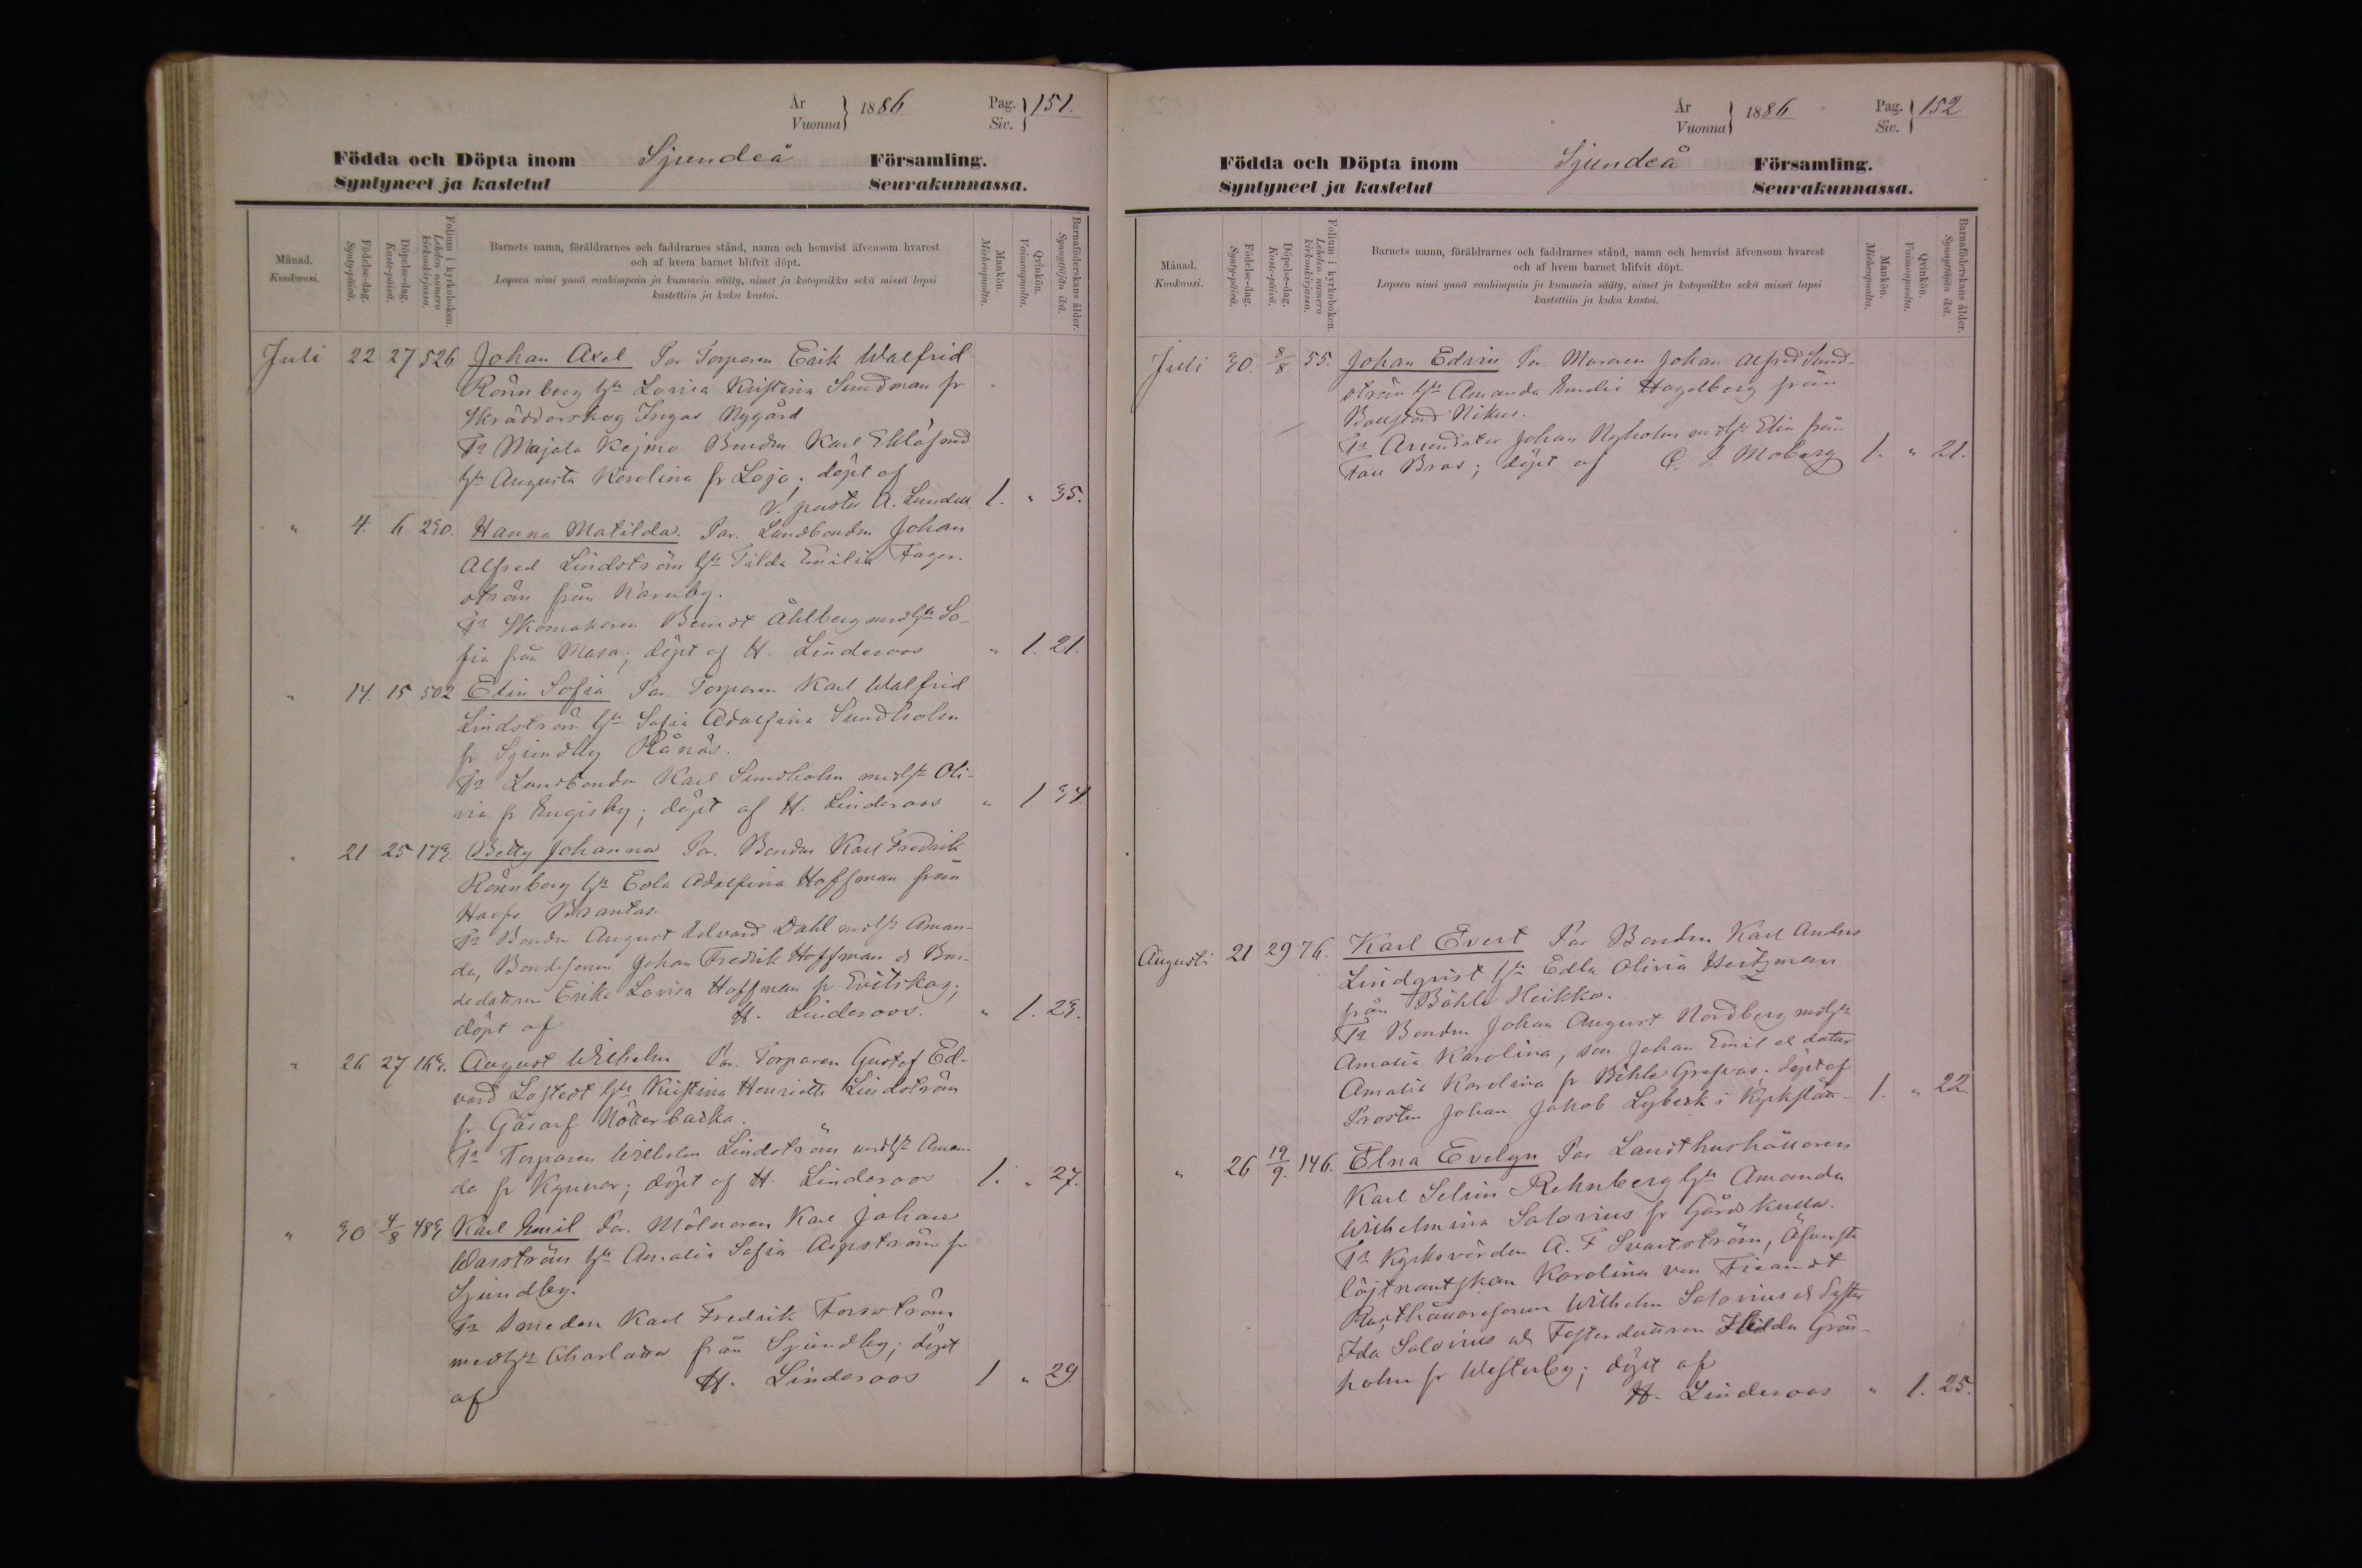 År
Vuonna } 1886 Pag.
Siv. } 151.
Födda och Döpta inom Sjundeå Församling.
Syntyneet ja kastetut Seurakunnassa.
Månad.
Kuukausi.
Födelse-dag.
Synty-päivä.
Döpelse-dag.
Kaste-päivä.
Folium i kyrkoboken.
Lehden numero
kirkonkirjassa.
Barnets namn, föräldrarnes och faddrarnes stånd, namn och hemvist äfvensom hvarest
och af hvem barnet blifvit döpt.
Lapsen nimi ynnä vanhimpain ja kummein sääty, nimet ja kotopaikka sekä missä lapsi
kastettiin ja kuka kastoi.
Mankön.
Miehenpuolta.
Qvinkön.
Vaimonpuolta.
Barnaföderskans ålder.
Synnyttäjän ikä.
Juli 22 27 526 Johan Axel Par Torparen Erik Walfrid
Rönnberg hu Lovisa Kristina Sundman fr
Skräddarskog Ingas Nygård
Fr Majala Kejmo Bonden Karl Eklöf med
hu Augusta Karolina fr Lojo; döpt af
v. pastor A. Lundell 1. " 35.
" 4. 6 230. Hanna Matilda. Par. Landbonden Johan
Alfred Lindström hu Tilda Emilia Fager-
ström från Karuby.
Fr Skomakaren Berndt Åhlberg med hu So-
fia från Masa; döpt af H. Linderoos " 1. 21.
" 14. 15 502 Elin Sofia Par. Torparen Karl Walfrid
Lindström hu Sofia Adolfina Sundholm
fr Sjundby Rånäs.
Fr Landbonden Karl Sundholm med hu Oli-
via fr Engisby; döpt af H. Linderoos " 1 34.
" 21 25 173 Betty Johanna Par. Bonden Karl Fredrik
Rönnberg hu Eola Adolfina Hoffman från
Haefs Brantas.
Fr Bonden August Edvard Dahl med hu Aman-
da, Bondesonen Johan Fredrik Hoffman o Bon-
dedottren Erika Lovisa Hoffman fr Evitskog;
döpt af H. Linderoos. " 1. 23.
" 26 27 163. August Wilhelm Par. Torparen Gustaf Ed-
vard Lostedt hu Kristina Henrietta Lindström
fr Gåsarf Nötterbacka.
Fr Torparen Wilhelm Lindström med hu Aman-
da fr Kynnar; döpt af H. Linderoos 1. " 27.
" 30 4/8 483. Karl Emil Par. Mölnaren Karl Johan
Warström hu Amalia Sofia Augström fr
Sjundby.
Fr Smeden Karl Fredrik Forsström
med hu Charlotta från Sjundby; döpt
af H. Linderoos 1 " 29.
År
Vuonna } 1886 Pag.
Siv. } 152
Födda och Döpta inom Sjundeå Församling.
Syntyneet ja kastetut Seurakunnassa.
Månad.
Kuukausi.
Födelse-dag.
Synty-päivä.
Döpelse-dag.
Kaste-päivä.
Folium i kyrkoboken.
Lehden numero
kirkonkirjassa.
Barnets namn, föräldrarnes och faddrarnes stånd, namn och hemvist äfvensom hvarest
och af hvem barnet blifvit döpt.
Lapsen nimi ynnä vanhimpain ja kummein sääty, nimet ja kotopaikka sekä missä lapsi
kastettiin ja kuka kastoi.
Mankön.
Miehenpuolta.
Qvinkön.
Vaimonpuolta.
Barnaföderskans ålder.
Synnyttäjän ikä.
Juli 30. 8/8. 55. Johan Edvin Par. Muraren Johan Alfred Sund-
ström hu Amanda Emelie Hagelberg från
Bollstad Nikus.
Fr Arrendator Johan Nyholm med hu Elin från
Tall Bras; döpt af C. S. Moberg 1. " 21.
Augusti 21 29 76. Karl Evert Par Bonden Karl Anders
Lindqvist hu Edla Olivia Heitzman
från Böhle Heikko.
Fr Bonden Johan August Nordberg med hu
Amalia Karolina, son Johan Emil o dotter
Amalia Karolina fr Böhle Grefvas; döpt af
Prosten Johan Jakob Lybeck i Kyrkslätt 1. " 22.
" 26 19/9. 146. Elna Evelyn Par Landthushållaren
Karl Selim Rehnberg hu Amanda
Wilhelmina Salovius fr Gårdskulla.
Fr Kyrkovärden A. F Svartström, Öfverste
löjtnantskan Karolina von Fieandt
Rusthållaresonen Wilhelm Salovius o Syster
Ida Salovius o Fosterdottren Hilda Grön-
holm fr Westerby; döpt af
H. Linderoos " 1. 25.